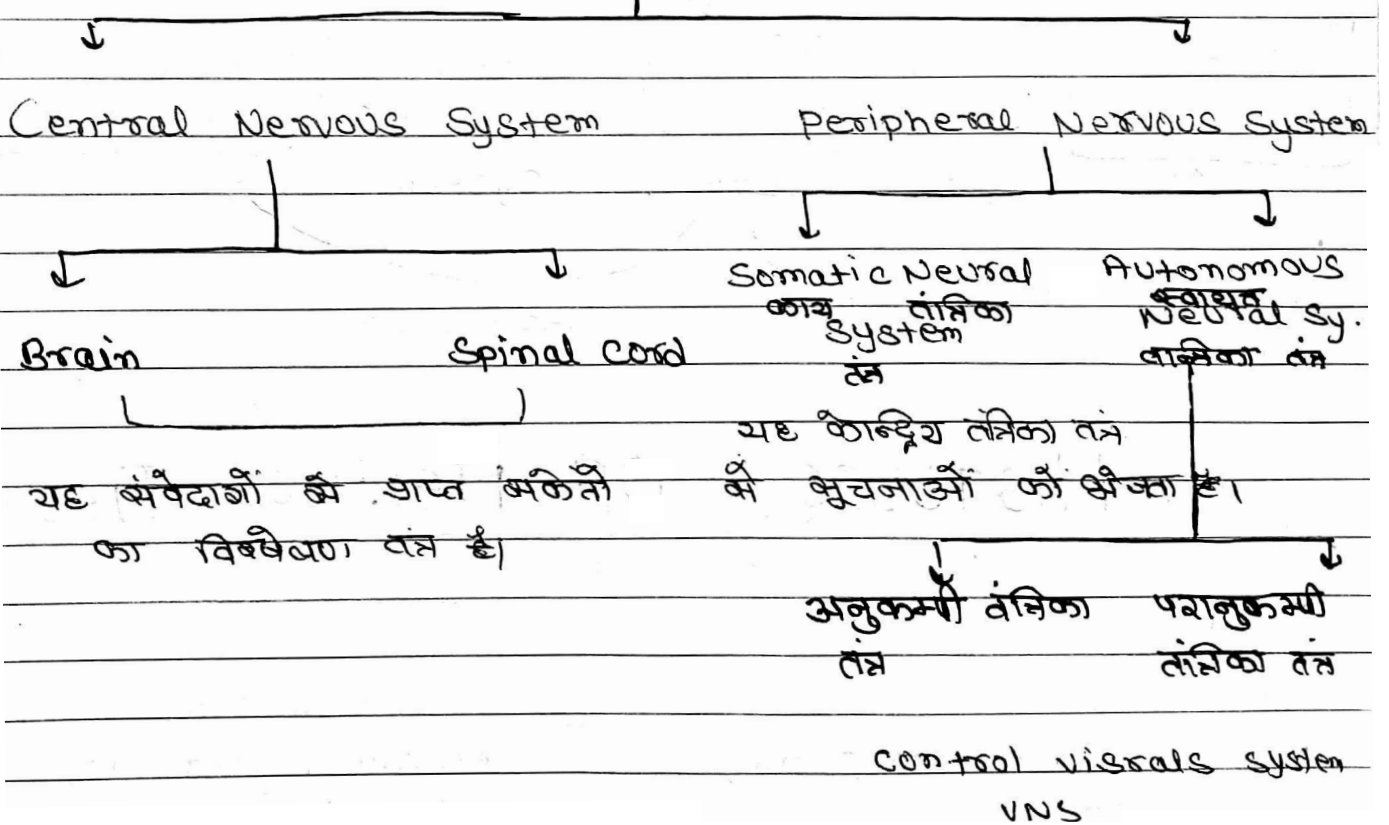 Central Nervous System
Peripheral Nervous System
Brain
Spinal Cord
यह संवेदागों से प्राप्त संकेतो
का विश्लेषण तंत्र है।
Somatic Neural
काय तांत्रिका
System
तंत्र
Autonomous
स्वायत
Neural Sy.
तान्त्रिका तंत्र
यह केन्द्रिय तंत्रिका तंत्र
से सूचनाओं को भेजता है।
अनुकम्पी तंत्रिका
तंत्र
परानुकम्पी
तांत्रिका तंत्र
Control visrals system
VNS